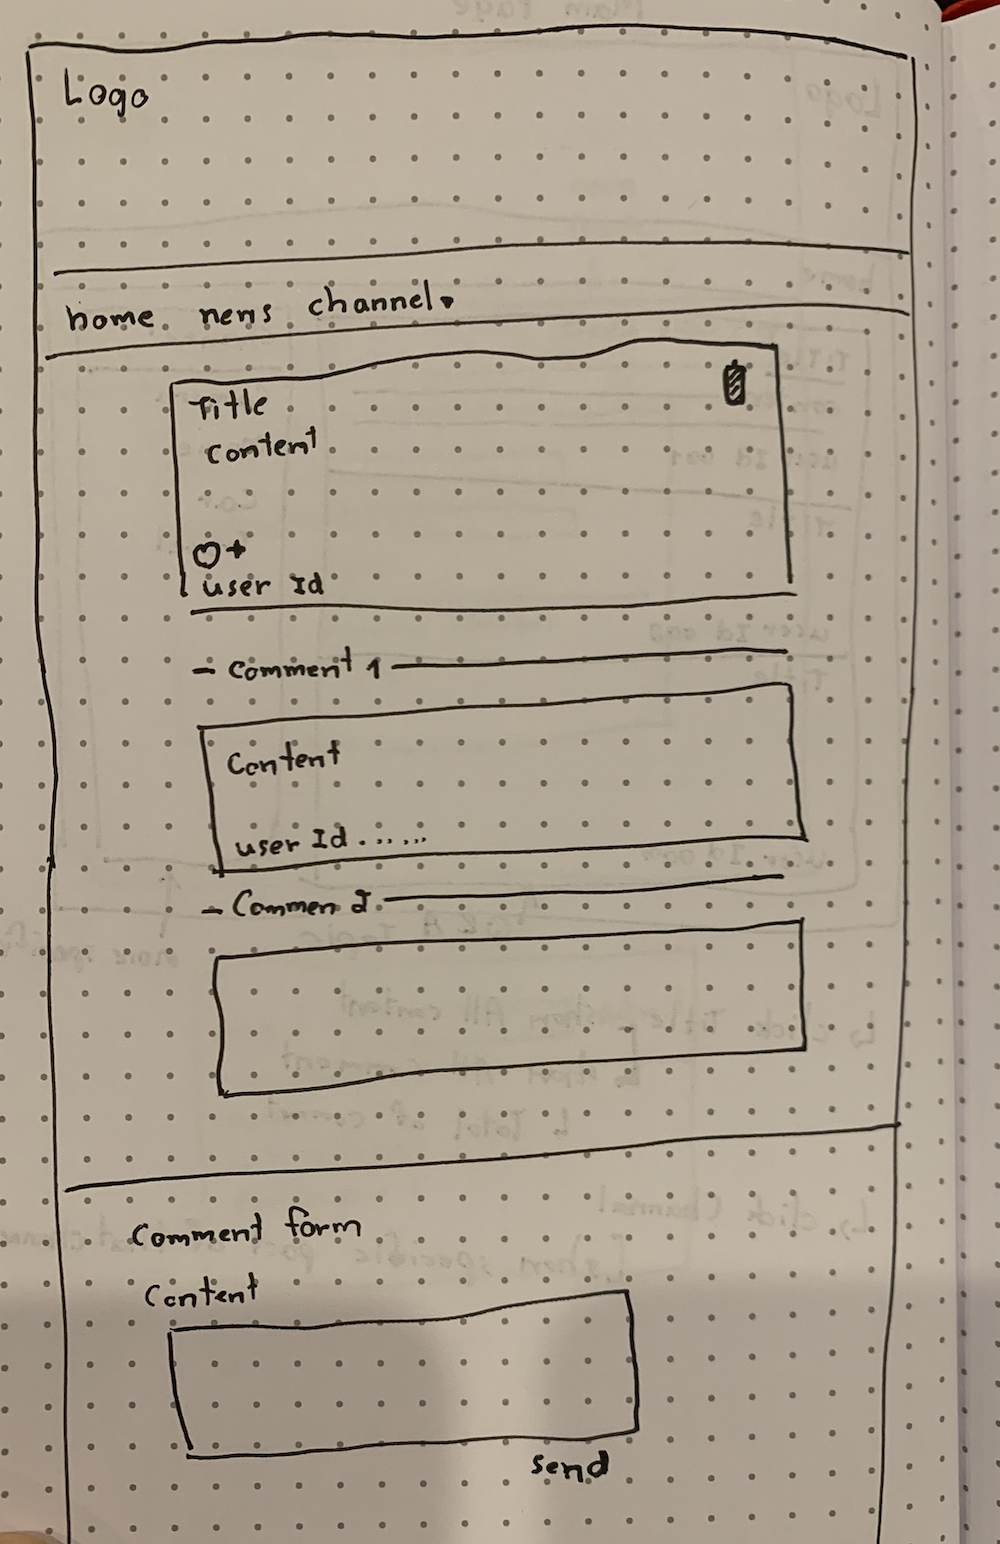 Logo
home news channel
Title
Content
+
user Id
- Comment 1
Content
user Id ......
- Commen 2
Comment form
Content
send